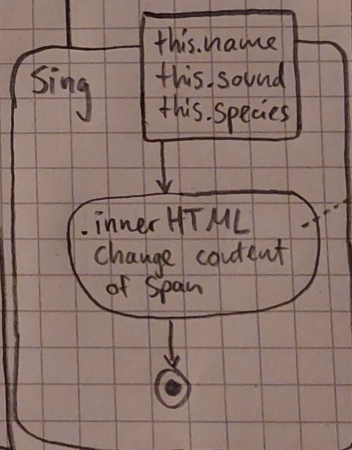 this.name
Sing
this.sound
this.species
.inner HTML
change content
of Span